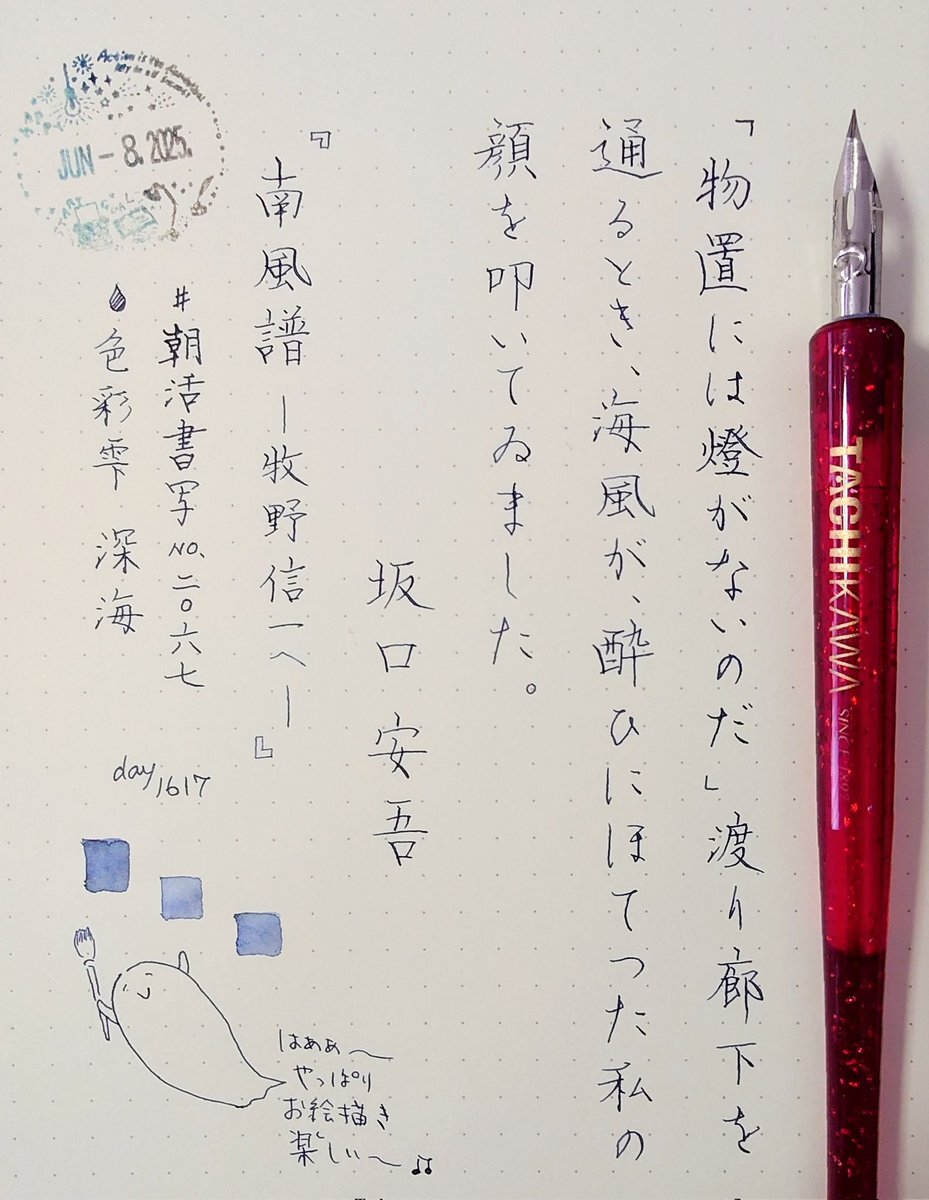 「物置には燈がないのだ」渡り廊下を
通るとき、海風が、酔ひにほてつた私の
顔を叩いてゐました。
坂口安吾
『南風譜 ―牧野信一へ―』
#朝活書写 NO.二〇六七
色彩雫 深海
day 1617
JUN-8.2025.
はぁぁ〜
やっぱり
お絵描き
楽しい〜♫
TACHIKAWA
SINCE 1897